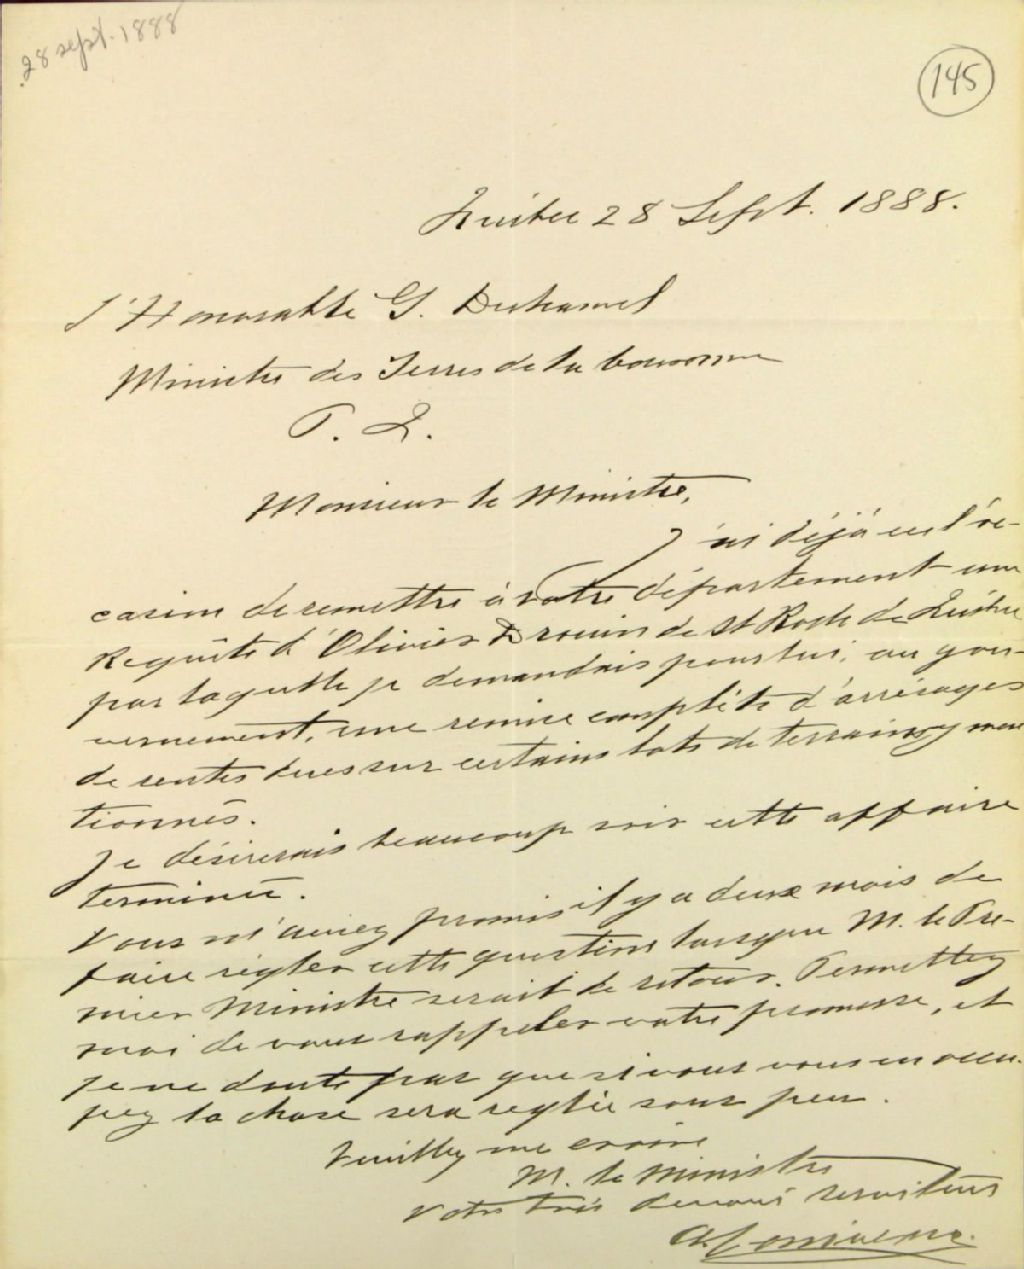 28 sept. 1888
145
Québec 28 Sept. 1888.
L'Honorable G. Duhamel
Ministre des Terres de la Couronne
P. Q.
Monsieur le Ministre,
J'ai déjà eu l'oc-
casion de remettre à votre département une
Requête d'Olivier Drouin de St Roch de Québec
par laquelle je demandais pour lui, au gou-
vernement, une remise complète d'arrérages
de rentes dues sur certains lots de terrains y men
tionnés.
Je désirerais beaucoup voir cette affaire
terminée.
Vous m'aviez promis il y a deux mois de
faire régler cette question lorsque M. le Pre-
mier Ministre serait de retour. Permettez
moi de vous rappeler votre promesse, et
je ne doute pas que si vous vous en occu-
pez la chose sera réglée sous peu.
Veuillez me croire
M. le Ministre
Votre très dévoué serviteur